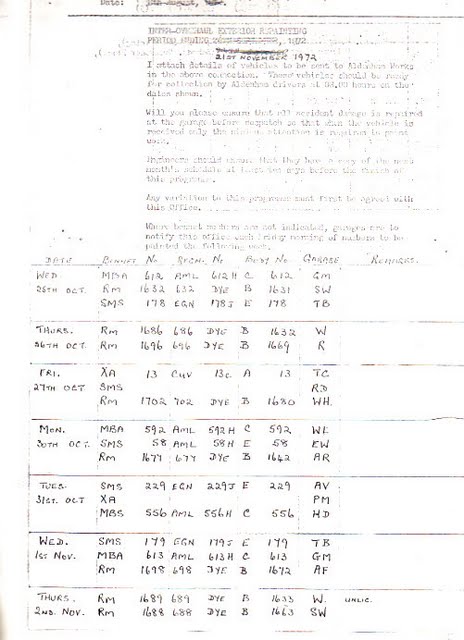 Date:
INTER-OVERHAUL EXTERIOR REPAINTING
PERIOD ENDING 1972
21ST NOVEMBER 1972
I attach details of vehicles to be sent to Aldenham Works
in the above connection. These vehicles should be ready
for collection by Aldenham drivers at 08.00 hours on the
dates shown.
Will you please ensure that all accident damage is repaired
at the garage before despatch so that when the vehicle is
received only the minimum attention is required to paint
work.
Engineers should ensure that they have a copy of the next
month's schedule at least ten days before the start of
this programme.
Any variation to this programme must first be agreed with
this Office.
Where bonnet numbers are not indicated, garages are to
notify this office each Friday morning of numbers to be
painted the following week.
DATE BONNET No REGN. No BODY No GARAGE REMARKS.
WED MBA 612 AML 612H C 612 GM
RM 1632 632 DYE B 1631 SW
OCT. SMS 178 EGN 178J E 178 TB
THURS. RM 1686 686 DYE B 1632 W
26TH OCT. RM 1696 696 DYE B 1669 R
FRI. XA 13 CUV 13C A 13 TC
27TH OCT SMS RD
RM 1702 702 DYE B 1680 WH.
MON. MBA 592 AML 592H C 592 WL
30TH OCT. SMS 58 AML 58H E 58 EW
RM 1677 677 DYE B 1642 AR
TUES. SMS 229 EGN 229J E 229 AV
31ST. OCT XA PM
MBS 556 AML 556H C 556 HD
WED. SMS 179 EGN 179J E 179 TB
1ST NOV. MBA 613 AML 613H C 613 GM
RM 1698 698 DYE B 1672 AF
THURS. RM 1689 689 DYE B 1633 W. UNLIC.
2ND. NOV. RM 1688 688 DYE B 1663 SW